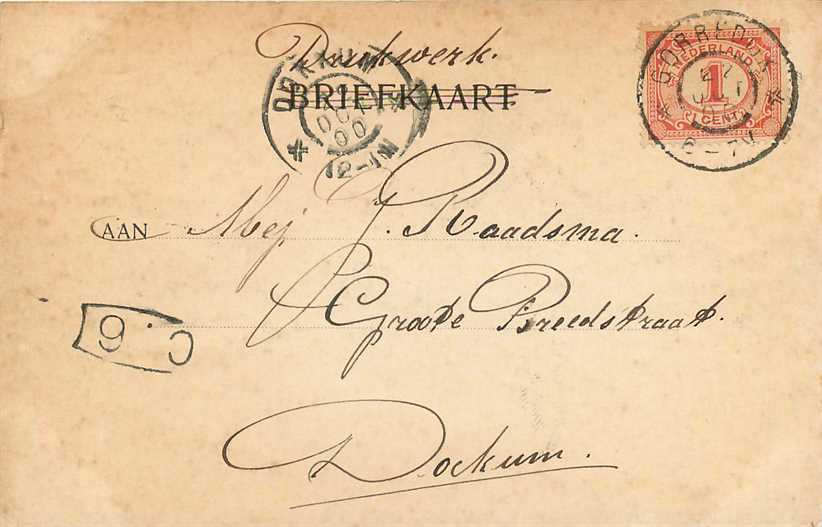 Drukwerk.
BRIEFKAART
DOKKUM
OCT
00
12-1N
GORREDIJK
6-7V
NEDERLAND
1
CENT
AAN Mej J. Raadsma.
Groote Breedstraat.
Dockum.
C. 6